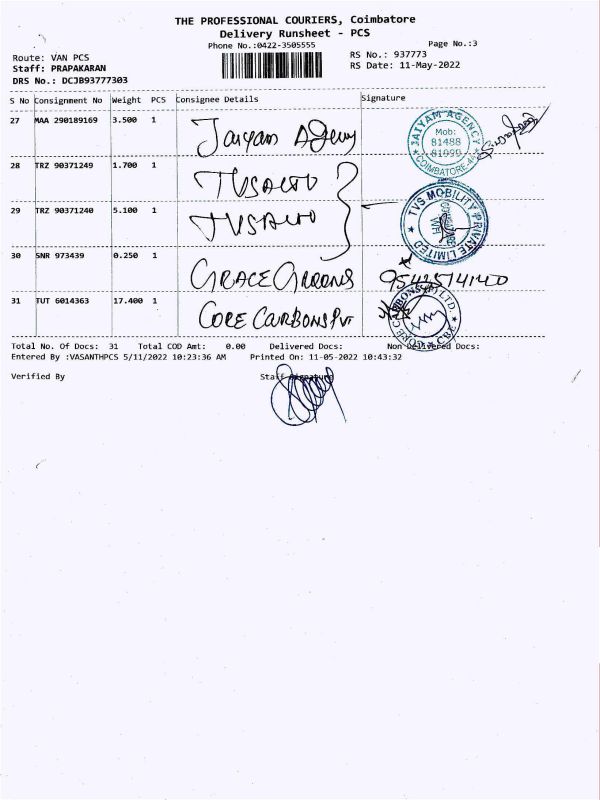 THE PROFESSIONAL COURIERS, Coimbatore
Delivery Runsheet - PCS
Phone No.:0422-3505555
Page No.:3
Route: VAN PCS
RS No.: 937773
Staff: PRAPAKARAN
RS Date: 11-May-2022
DRS No.: DCJB93777303
S No Consignment No Weight PCS Consignee Details Signature
27 MAA 290189169 3.500 1 Jaiyam Agency
JAIYAM AGENCY
Mob:
81488
COIMBATORE-44
28 TRZ 90371249 1.700 1
29 TRZ 90371240 5.100 1
TVS MOBILITY PRIVATE LIMITED
30 SNR 973439 0.250 1 GRACE
31 TUT 6014363 17.400 1 CORE CARBONS Pvt
CORE CARBONS (P) LTD. CBE
Total No. Of Docs: 31 Total COD Amt: 0.00 Delivered Docs: Non Delivered Docs:
Entered By :VASANTHPCS 5/11/2022 10:23:36 AM Printed On: 11-05-2022 10:43:32
Verified By Staff Signature